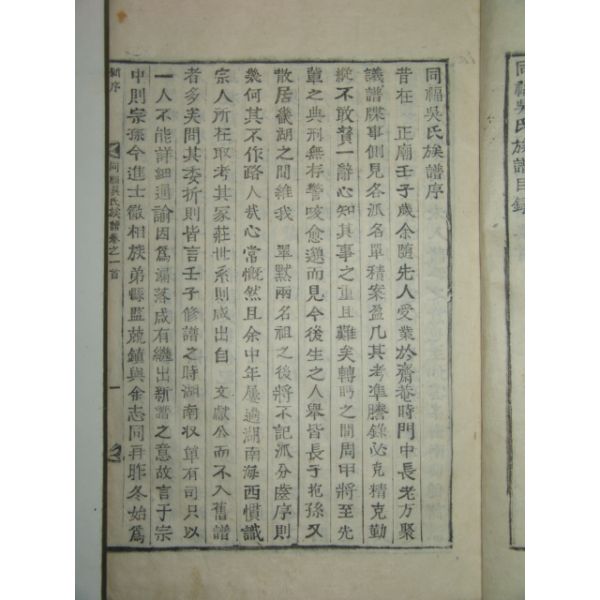 同福吳氏族譜目錄
同福吳氏族譜序
昔在 正廟壬子歲余隨先人受業於齋菴時門中長老方聚
議譜牒事側見各派名單積案盈几其考準謄錄必克精克勤
縱不敢贊一辭心知其事之重且難矣轉眄之間周甲將至先
輩之典刑無存警咳愈邈而見今後生之人舉皆長子抱孫又
散居畿湖之間維我 單默兩名祖之後將不記派分齒序則
幾何其不作路人哉心常慨然且余中年屢過湖南海西慣識
宗人所在取考其家莊世系則咸出自 文獻公而不入舊譜
者多矣問其委折則皆言壬子修譜之時湖南收單有司只以
一人不能詳細通諭因爲漏落咸有繼出新譜之意故言于宗
中則宗孫今進士徽相族弟縣監兢鎮與余志同再昨冬始爲
舊序
同福吳氏族譜卷之一首
一